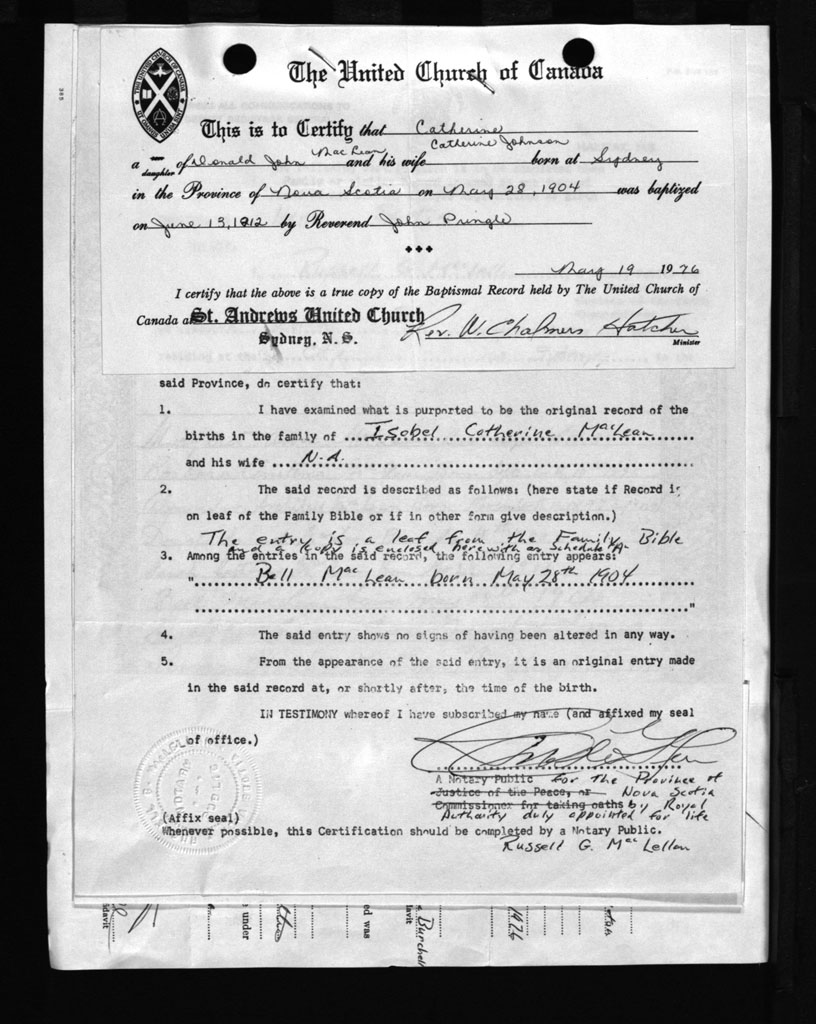 The United Church of Canada
This is to Certify that Catherine
a daughter of Donald John MacLean and his wife Catherine Johnson born at Sydney
in the Province of Nova Scotia on May 28, 1904 was baptized
on June 13, 1912 by Reverend John Pringle
May 19 1976
I certify that the above is a true copy of the Baptismal Record held by The United Church of
Canada at St. Andrews United Church
Sydney, N. S.
Rev. W. Chalmers Hatcher
Minister
said Province, do certify that:
1. I have examined what is purported to be the original record of the
births in the family of Isobel Catherine MacLean
and his wife N.A.
2. The said record is described as follows: (here state if Record is
on leaf of the Family Bible or if in other form give description.)
The entry is a leaf from the Family Bible
and a copy is enclosed herewith as Schedule "A"
3. Among the entries in the said record, the following entry appears:
" Bell MacLean born May 28th 1904
"
4. The said entry shows no signs of having been altered in any way.
5. From the appearance of the said entry, it is an original entry made
in the said record at, or shortly after, the time of the birth.
IN TESTIMONY whereof I have subscribed my name (and affixed my seal
of office.)
A Notary Public for the Province of
Justice of the Peace, or Nova Scotia
Commissioner for taking oaths by Royal
Authority duly appointed for life
(Affix seal)
Whenever possible, this Certification should be completed by a Notary Public.
Russell G. MacLellan
davit
under
ed was
Burchell
1976